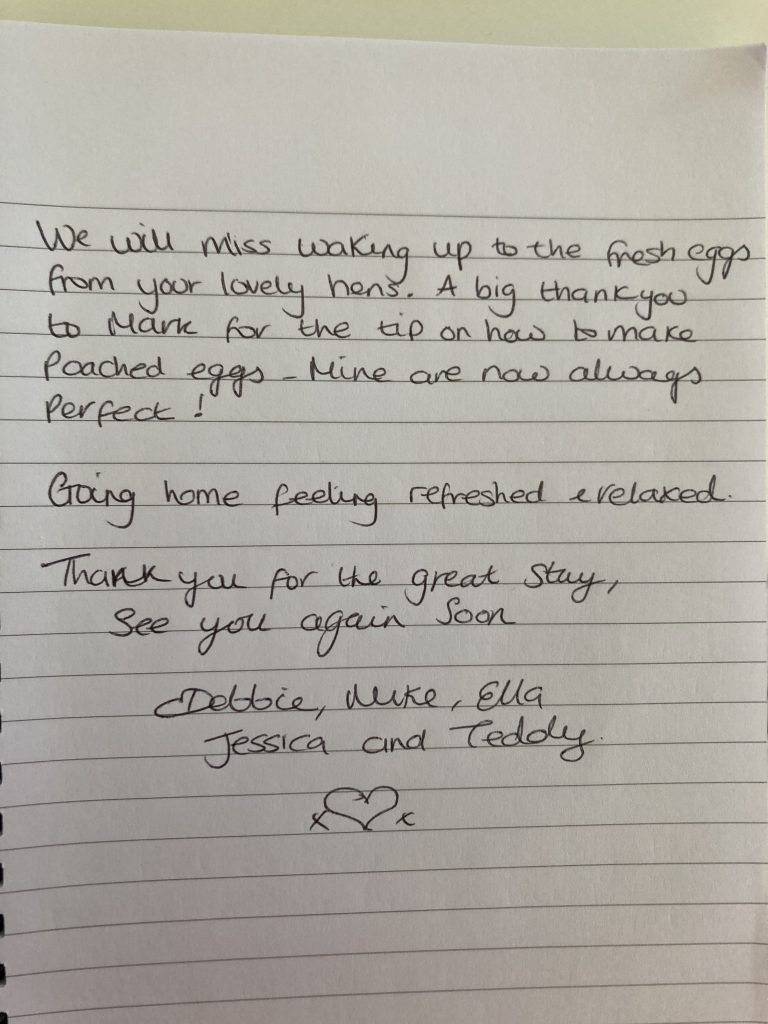 We will miss waking up to the fresh eggs
from your lovely hens. A big thank you
to Mark for the tip on how to make
Poached eggs - Mine are now always
Perfect!
Going home feeling refreshed & relaxed.
Thank you for the great stay,
See you again Soon
Debbie, Mike, Ella
Jessica and Teddy.
x x